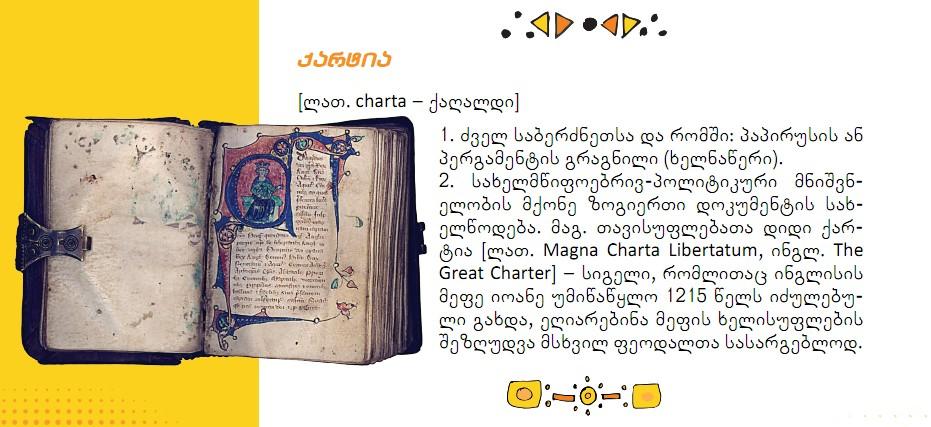 ქარტია
[ლათ. charta – ქაღალდი]
1. ძველ საბერძნეთსა და რომში: პაპირუსის ან
პერგამენტის გრაგნილი (ხელნაწერი).
2. სახელმწიფოებრივ-პოლიტიკური მნიშვნ-
ელობის მქონე ზოგიერთი დოკუმენტის სახ-
ელწოდება. მაგ. თავისუფლებათა დიდი ქარ-
ტია [ლათ. Magna Charta Libertatum, ინგლ. The
Great Charter] – სიგელი, რომლითაც ინგლისის
მეფე იოანე უმიწაწყლო 1215 წელს იძულებუ-
ლი გახდა, ეღიარებინა მეფის ხელისუფლების
შეზღუდვა მსხვილ ფეოდალთა სასარგებლოდ.